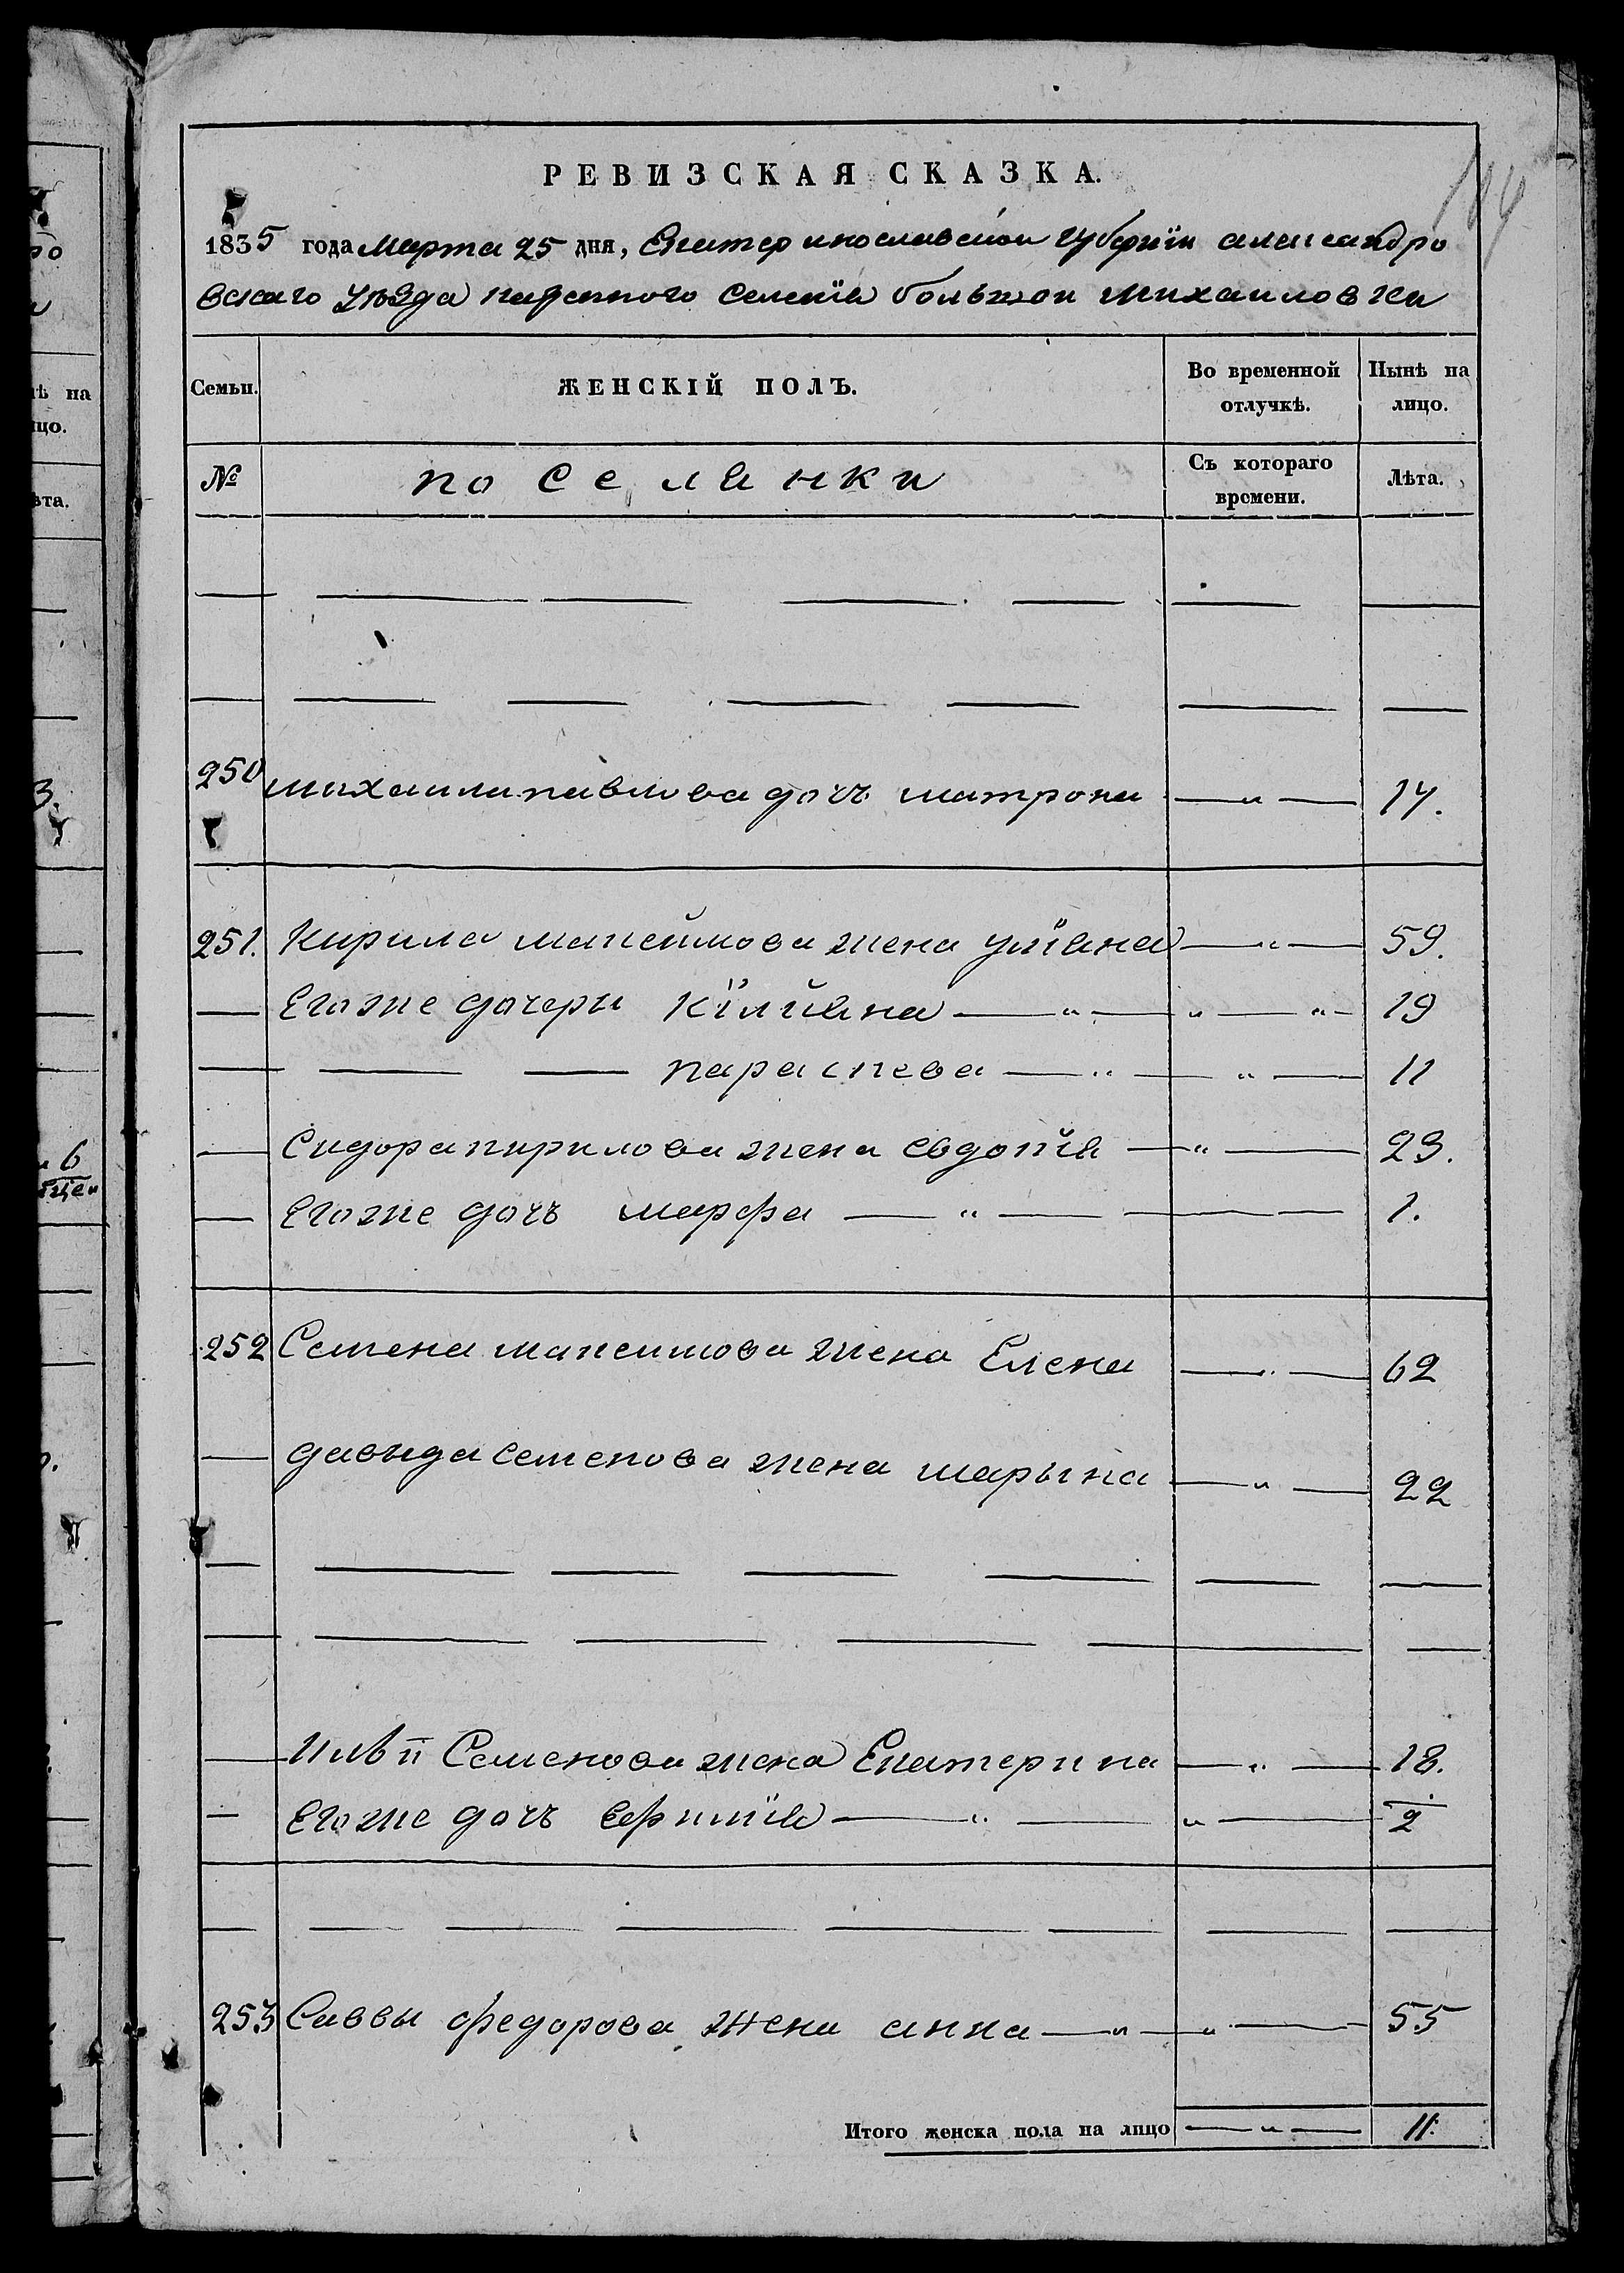 РЕВИЗСКАЯ СКАЗКА.
1835 года Марта 25 дня, Екатеринославской губернїи александро
вскаго уѣзда казенного селенїя большой михаиловки
Семьи. ЖЕНСКІЙ ПОЛЪ. Во временной отлучкѣ. Нынѣ на лицо.
№ поселянки Съ котораго времени. Лѣта.
250 михаила павлова дочь матрона — „ — 14.
251. Кирила максимова жена улїяна — „ — 59.
— Егоже дочери Кїлїяна — „ — „ — „ — 19
— — — параскева — „ — „ — 11
— Сидора кирилова жена евдокїя — „ — 23.
— Егоже дочь марфа — „ — — — 1.
252 Семена максимова жена Елена — „ — 62
— давыда семенова жена марына — „ — 22
— Семенова жена Екатерина — „ — 18.
— Егоже дочь ефимїя — „ — „ — 2
253 Саввы федорова жена анна — „ — „ — 55
Итого женска пола на лицо — „ — 11.
нѣ на
ицо.
ѣта.